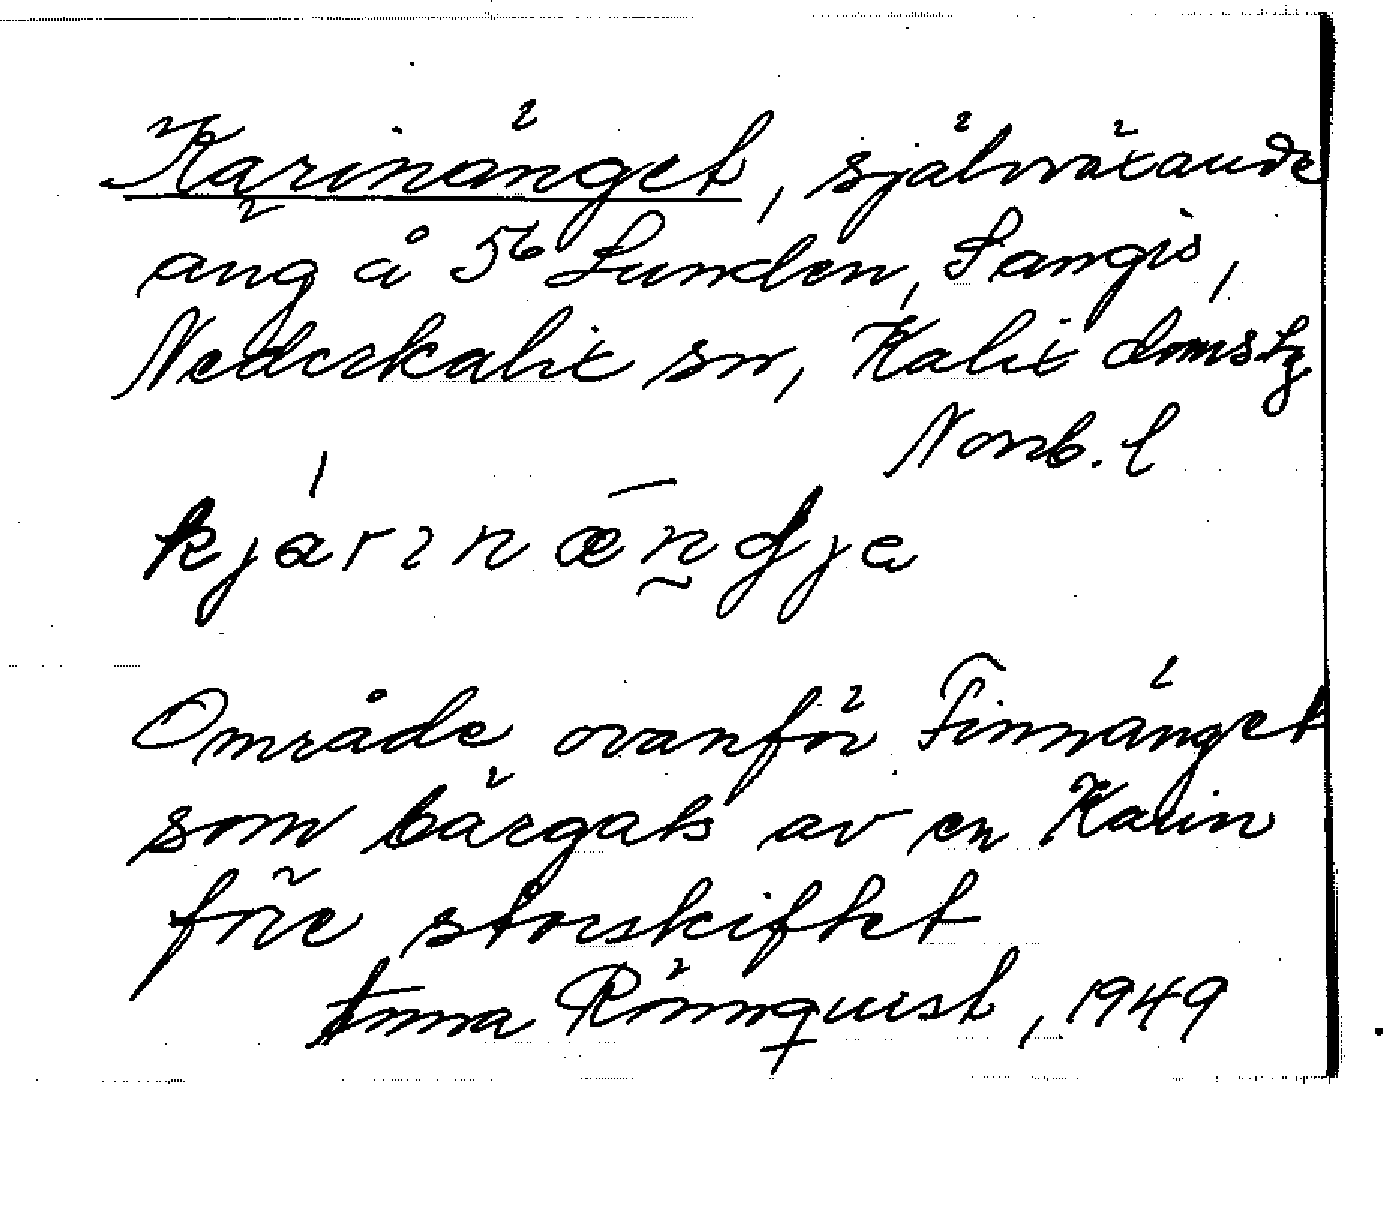 Karinänget, självväxande
äng å 5⁶ Lunden, Sangis,
Nederkalix sn, Kalix domstg
Norrb. l
kjárınænḏja
Område ovanför Finnänget
som bärgats av en Karin
före storskiftet
Anna Rönnquist, 1949